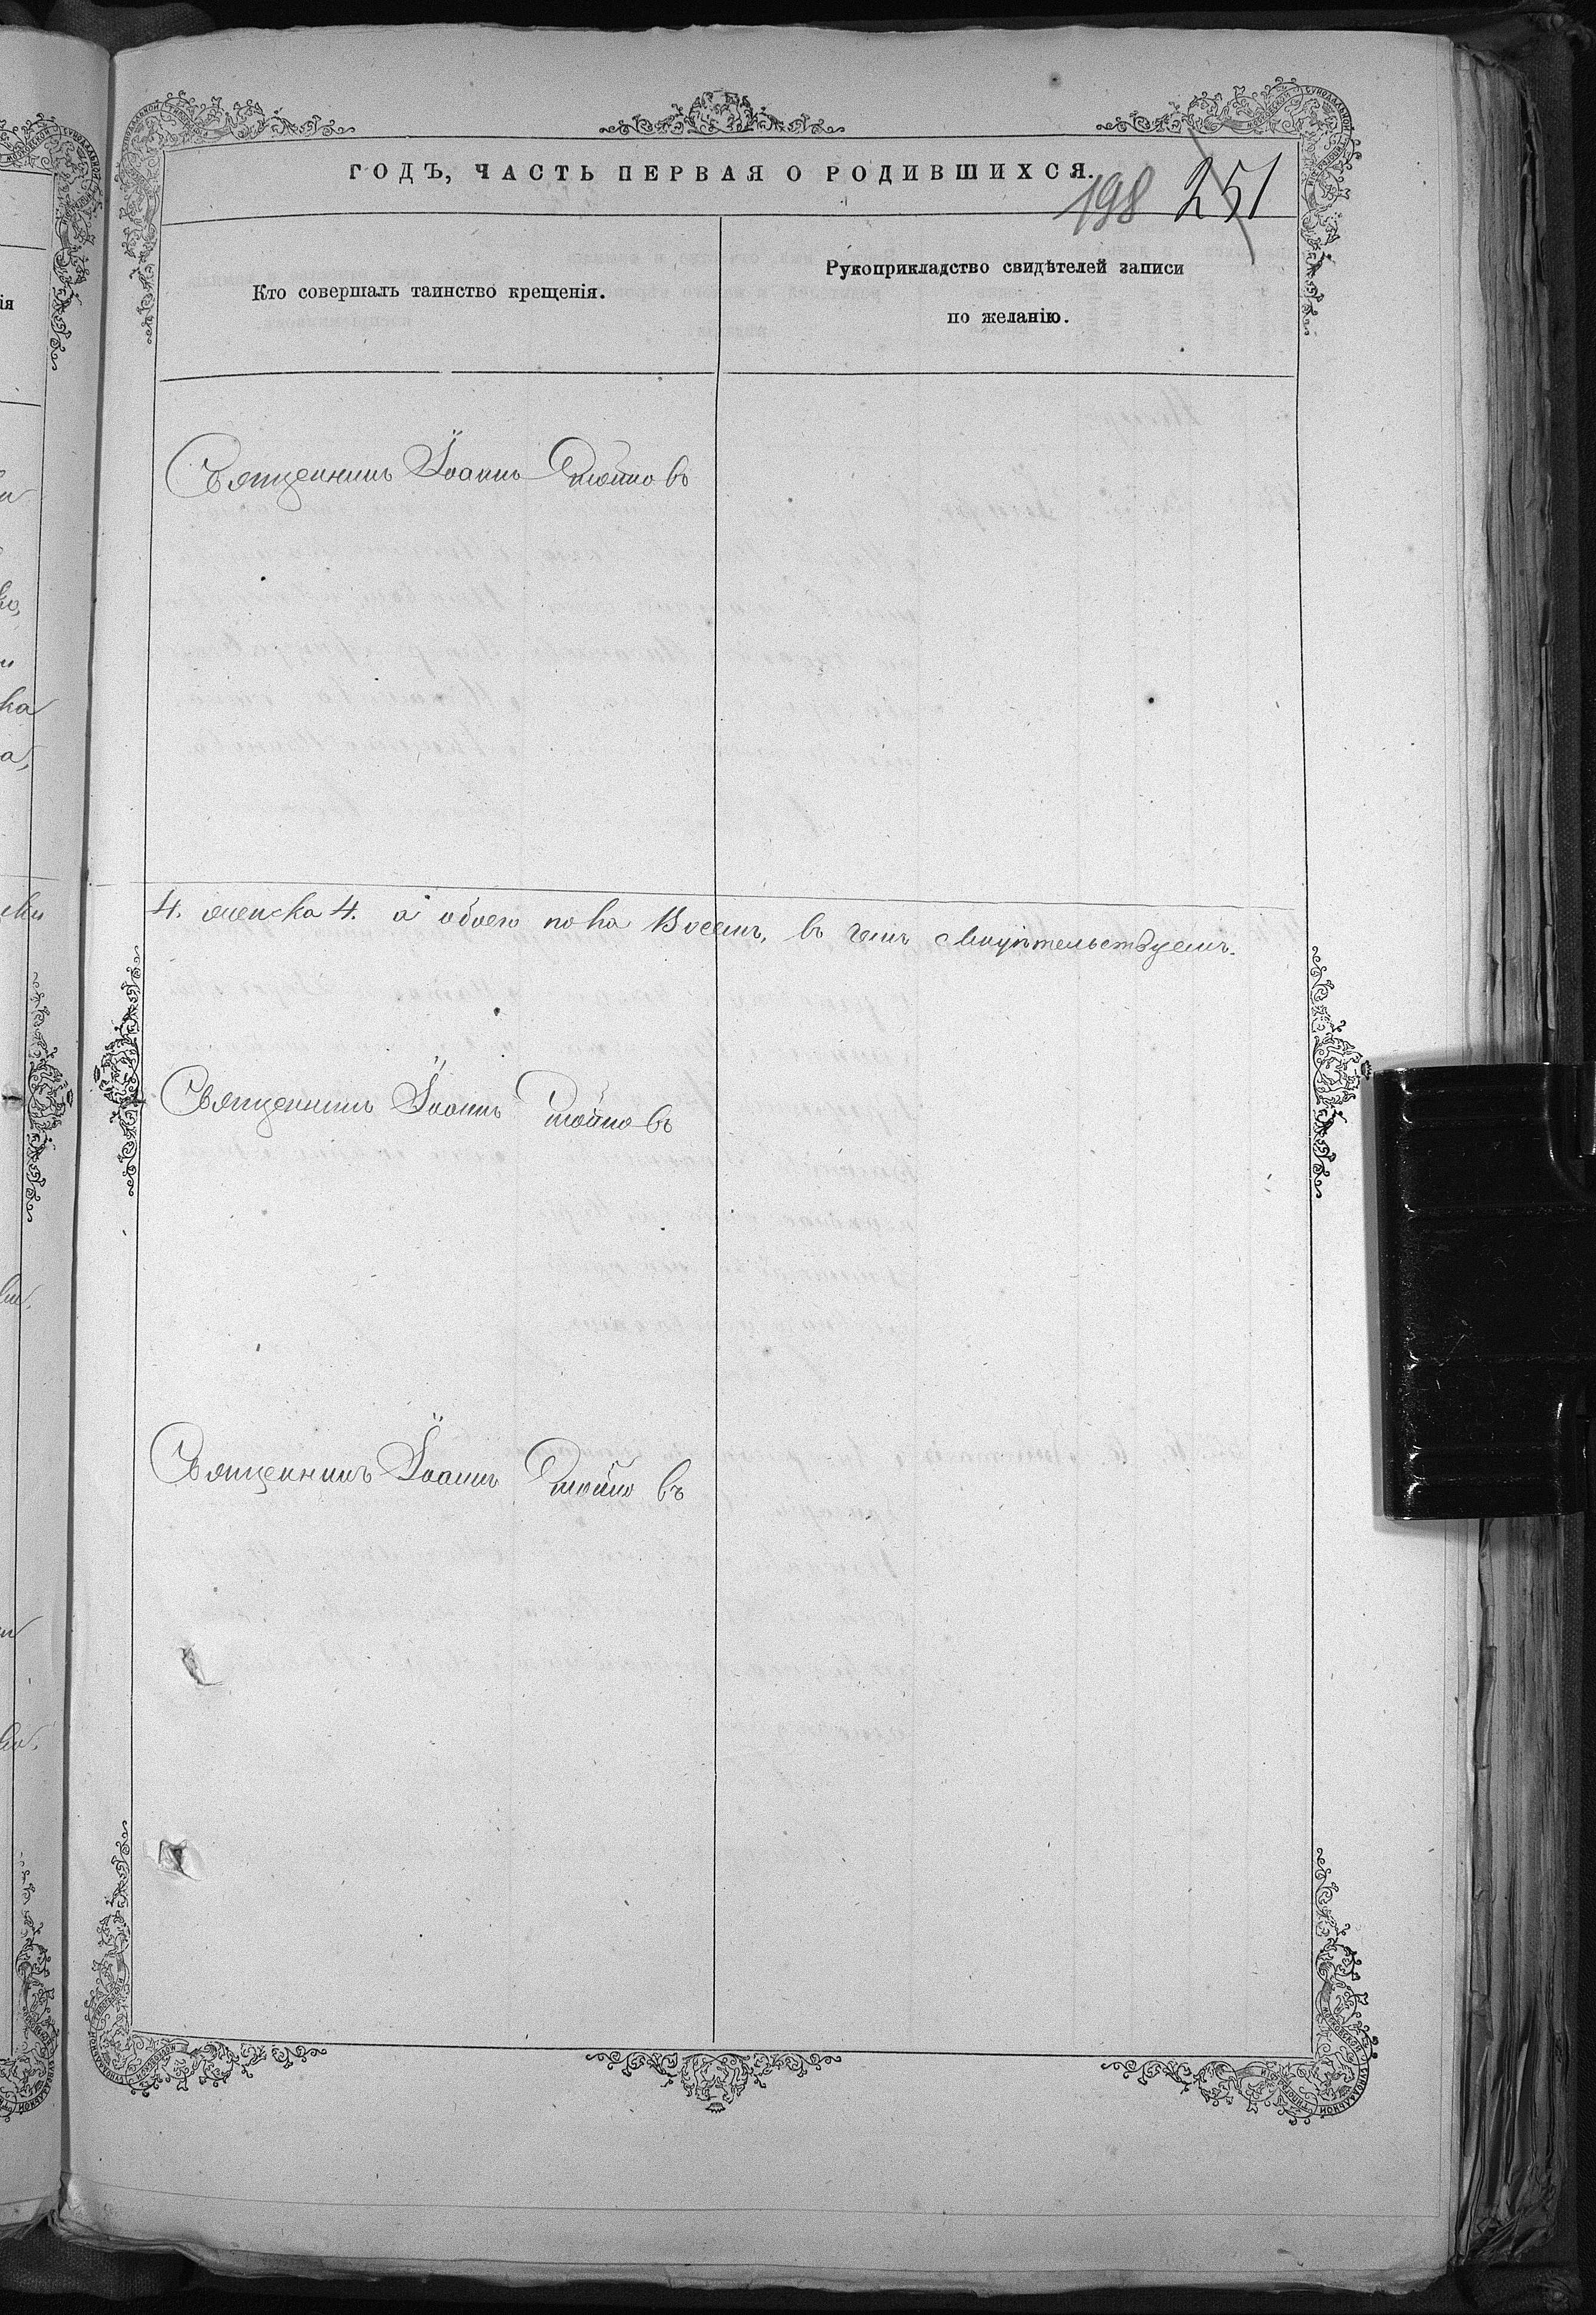 ГОДЪ, ЧАСТЬ ПЕРВАЯ О РОДИВШИХСЯ.
198 251
Кто совершалъ таинство крещенія.
Рукоприкладство свидѣтелей записи
по желанію.
Священникъ Іоаннъ
4. женска 4. а обоего пола Восемь, въ чемъ свидѣтельствуемъ.
Священникъ Іоаннъ
Священникъ Іоаннъ